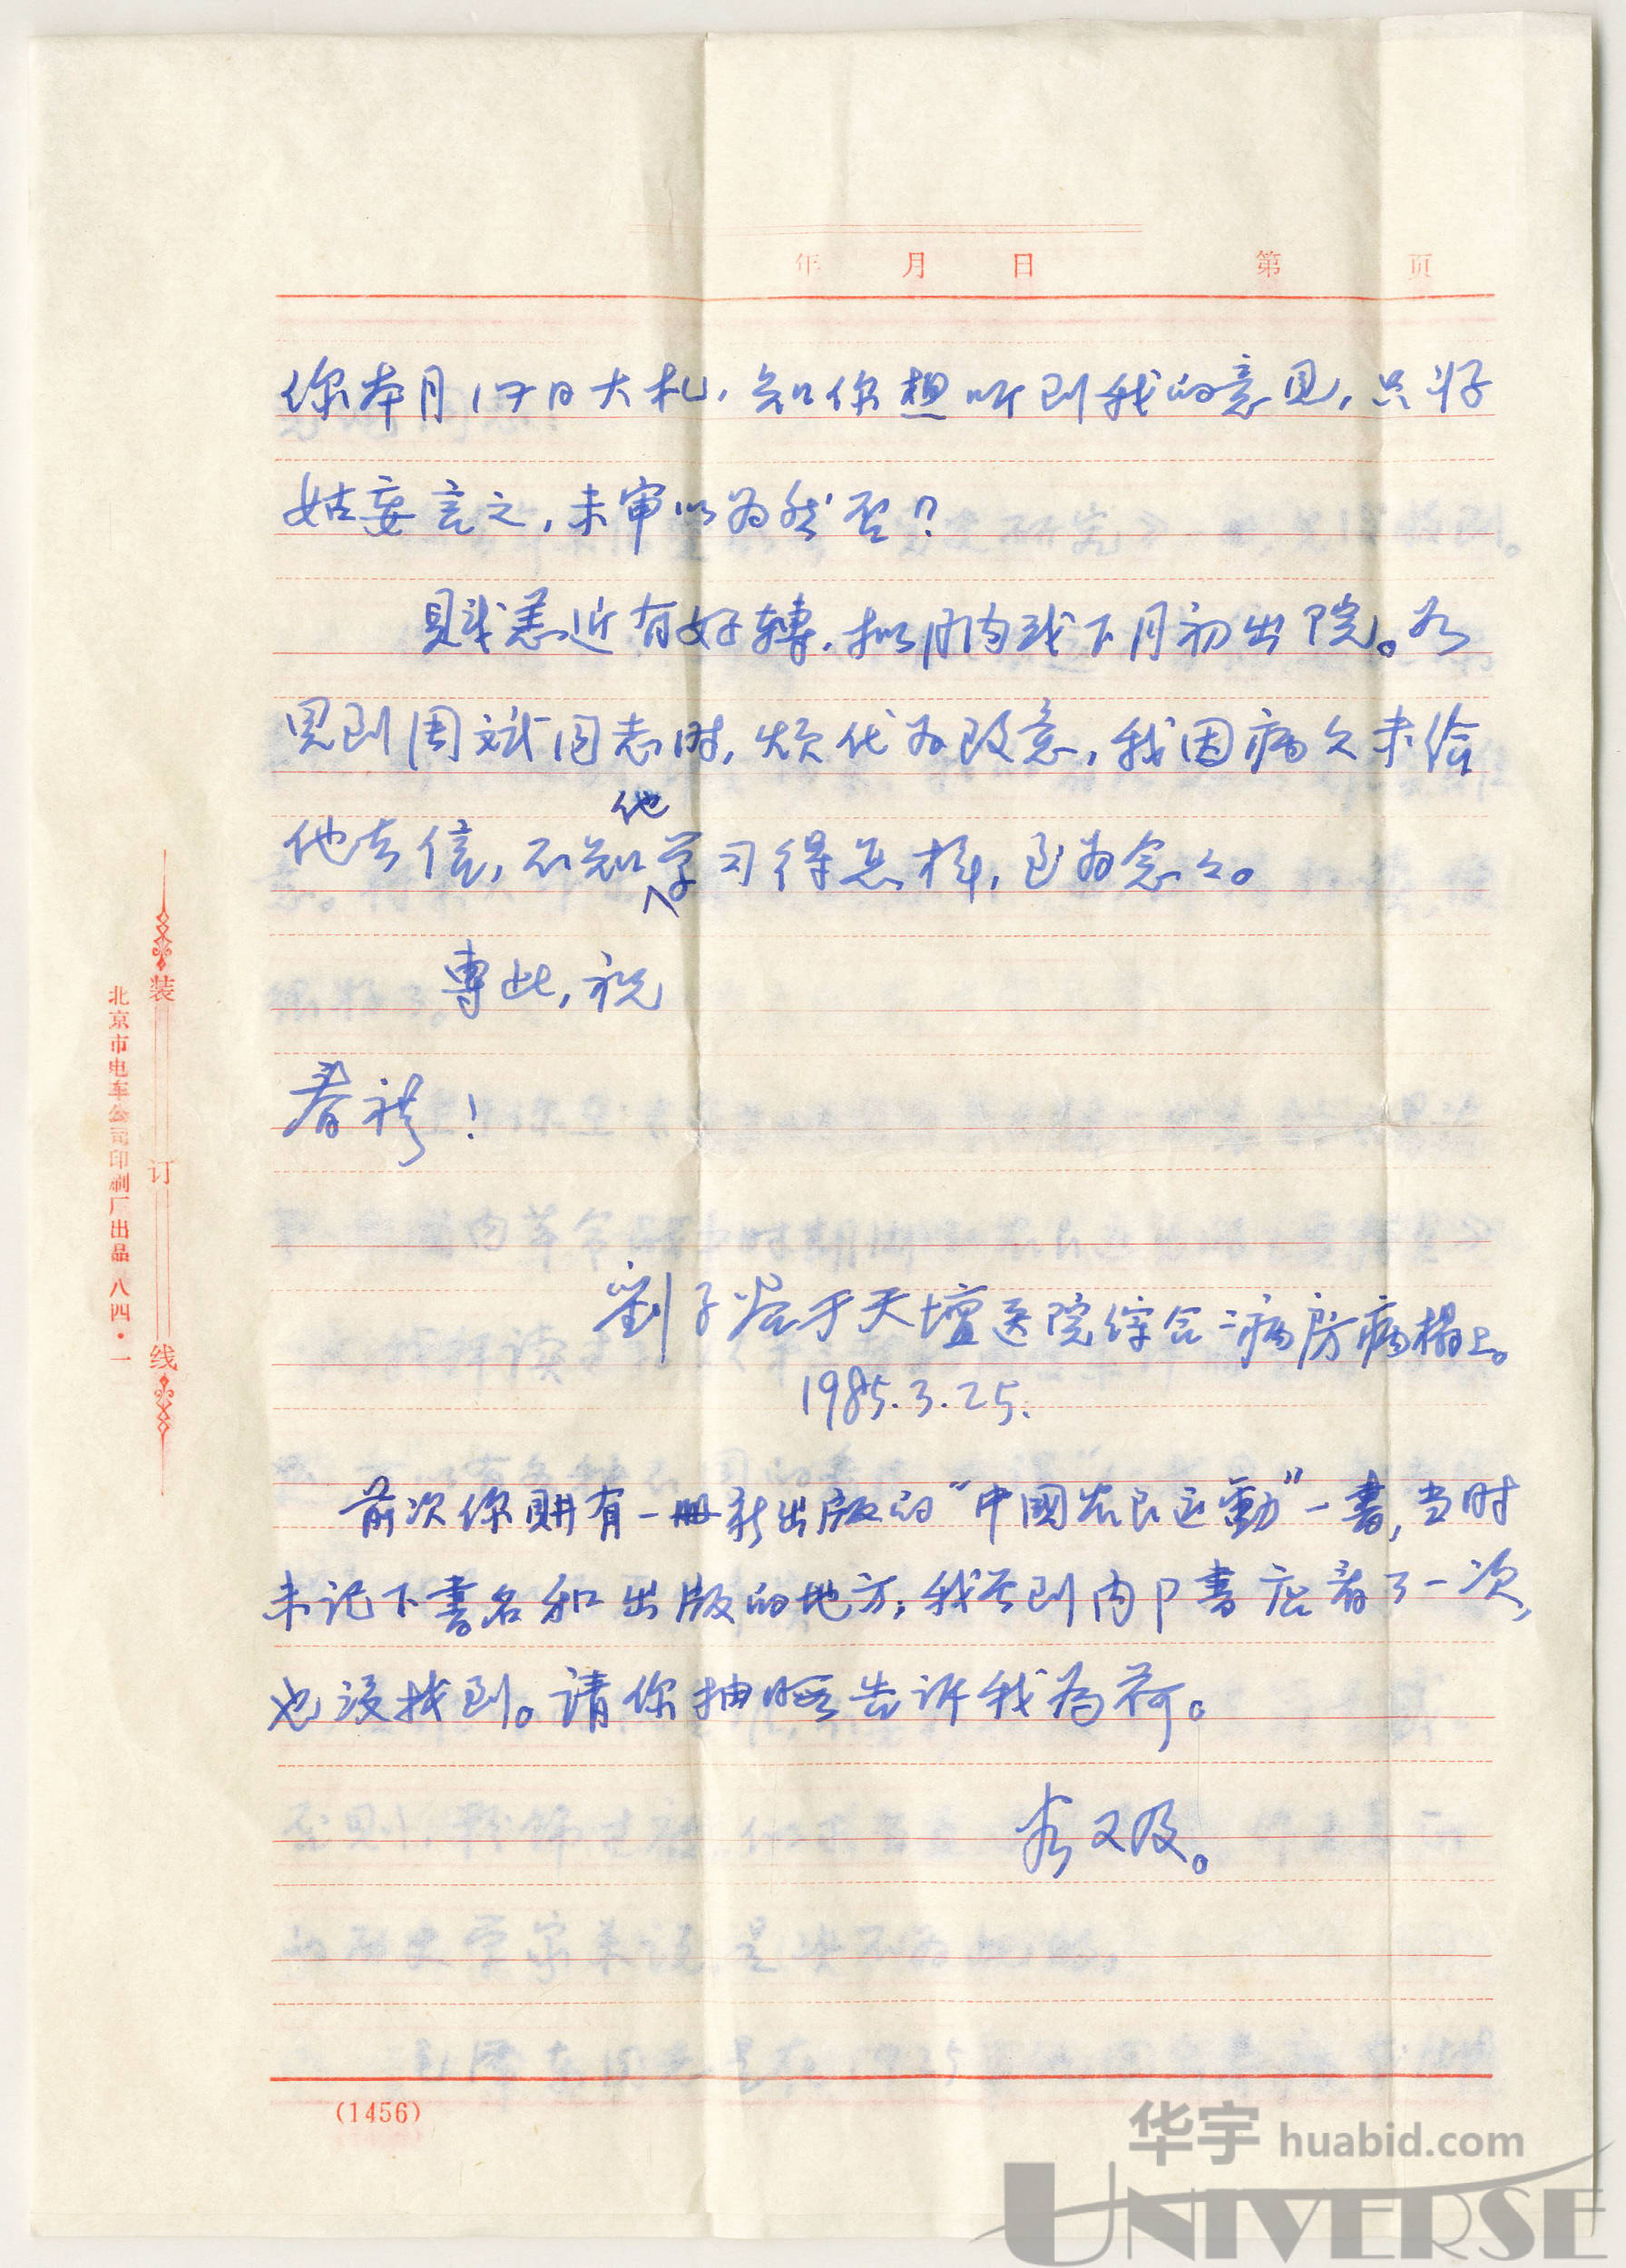 年 月 日 第 页
你本月17日大札，知你想听到我的意见，只好
姑妄言之，未审以为然否？
贱恙近有好轉，拟月内或下月初出院。如
见到周斌同志时，烦代为致意，我因病久未给
他去信，不知他学习得怎样，至为念々。
專此，祝
春祺！
劉子谷于天壇医院综合二病房病榻上。
1985.3.25.
前次你购有一册新出版的“中國农民运動”一書，当时
未记下書名和出版的地方；我曾到内部書店看了一次，
也没找到。请你抽暇告诉我为荷。
谷又及。
装订线
北京市电车公司印刷厂出品 八四·一
(1456)
华宇 huabid.com
UNIVERSE